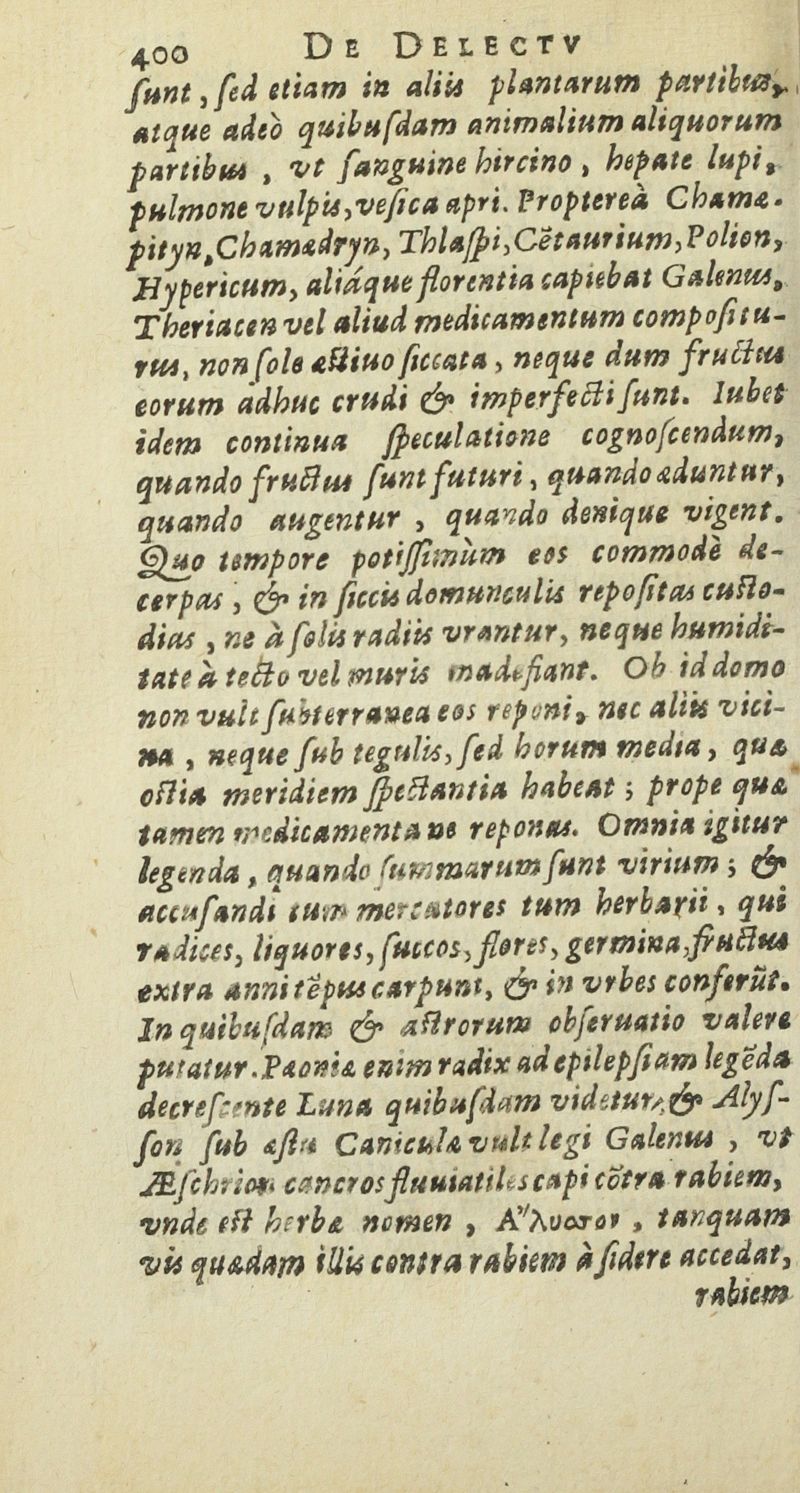 400 DE DELECTV
ſunt, ſed etiam in aliis plantarum partibus,
atque adeò quibuſdam animalium aliquorum
partibus, vt ſanguine hircino, hepate lupi,
pulmone vulpis, veſica apri. Proptereà Chamæ-
pityn, Chamædryn, Thlaſpi, Cẽtaurium, Polion,
Hypericum, aliáque florentia capiebat Galenus,
Theriacen vel aliud medicamentum compoſitu-
rus, non ſole æstiuo ſiccata, neque dum fructus
eorum adhuc crudi & imperfecti ſunt. Iubet
idem continua ſpeculatione cognoſcendum,
quando fructus ſunt futuri, quando æduntur,
quando augentur, quando denique vigent.
Quo tempore potiſſimùm eos commodè de-
cerpas, & in ſiccis domunculis repoſitas cuſto-
dias, ne à ſolis radiis vrantur, neque humidi-
tate à tecto vel muris madefiant. Ob id domo
non vult ſubterranea eos reponi, nec aliis vici-
na, neque ſub tegulis, ſed horum media, quæ
oſtia meridiem ſpectantia habeat; prope quæ
tamen medicamenta ne reponas. Omnia igitur
legenda, quando ſummarum ſunt virium; &
accuſandi tum mercatores tum herbarii, qui
radices, liquores, ſuccos, flores, germina, fructus
extra anni tẽpus carpunt, & in vrbes conferũt.
In quibuſdam & aſtrorum obſeruatio valere
putatur. Pæoniæ enim radix ad epilepſiam legẽda
decreſcente Luna quibuſdam videtur, & Alyſ-
ſon ſub æſtu Caniculæ vult legi Galenus, vt
Æſchrion cancros fluuiatiles capi cõtra rabiem,
vnde est herbæ nomen, Ἄλυσσον, tanquam
vis quædam illis contra rabiem à ſidere accedat,
rabiem